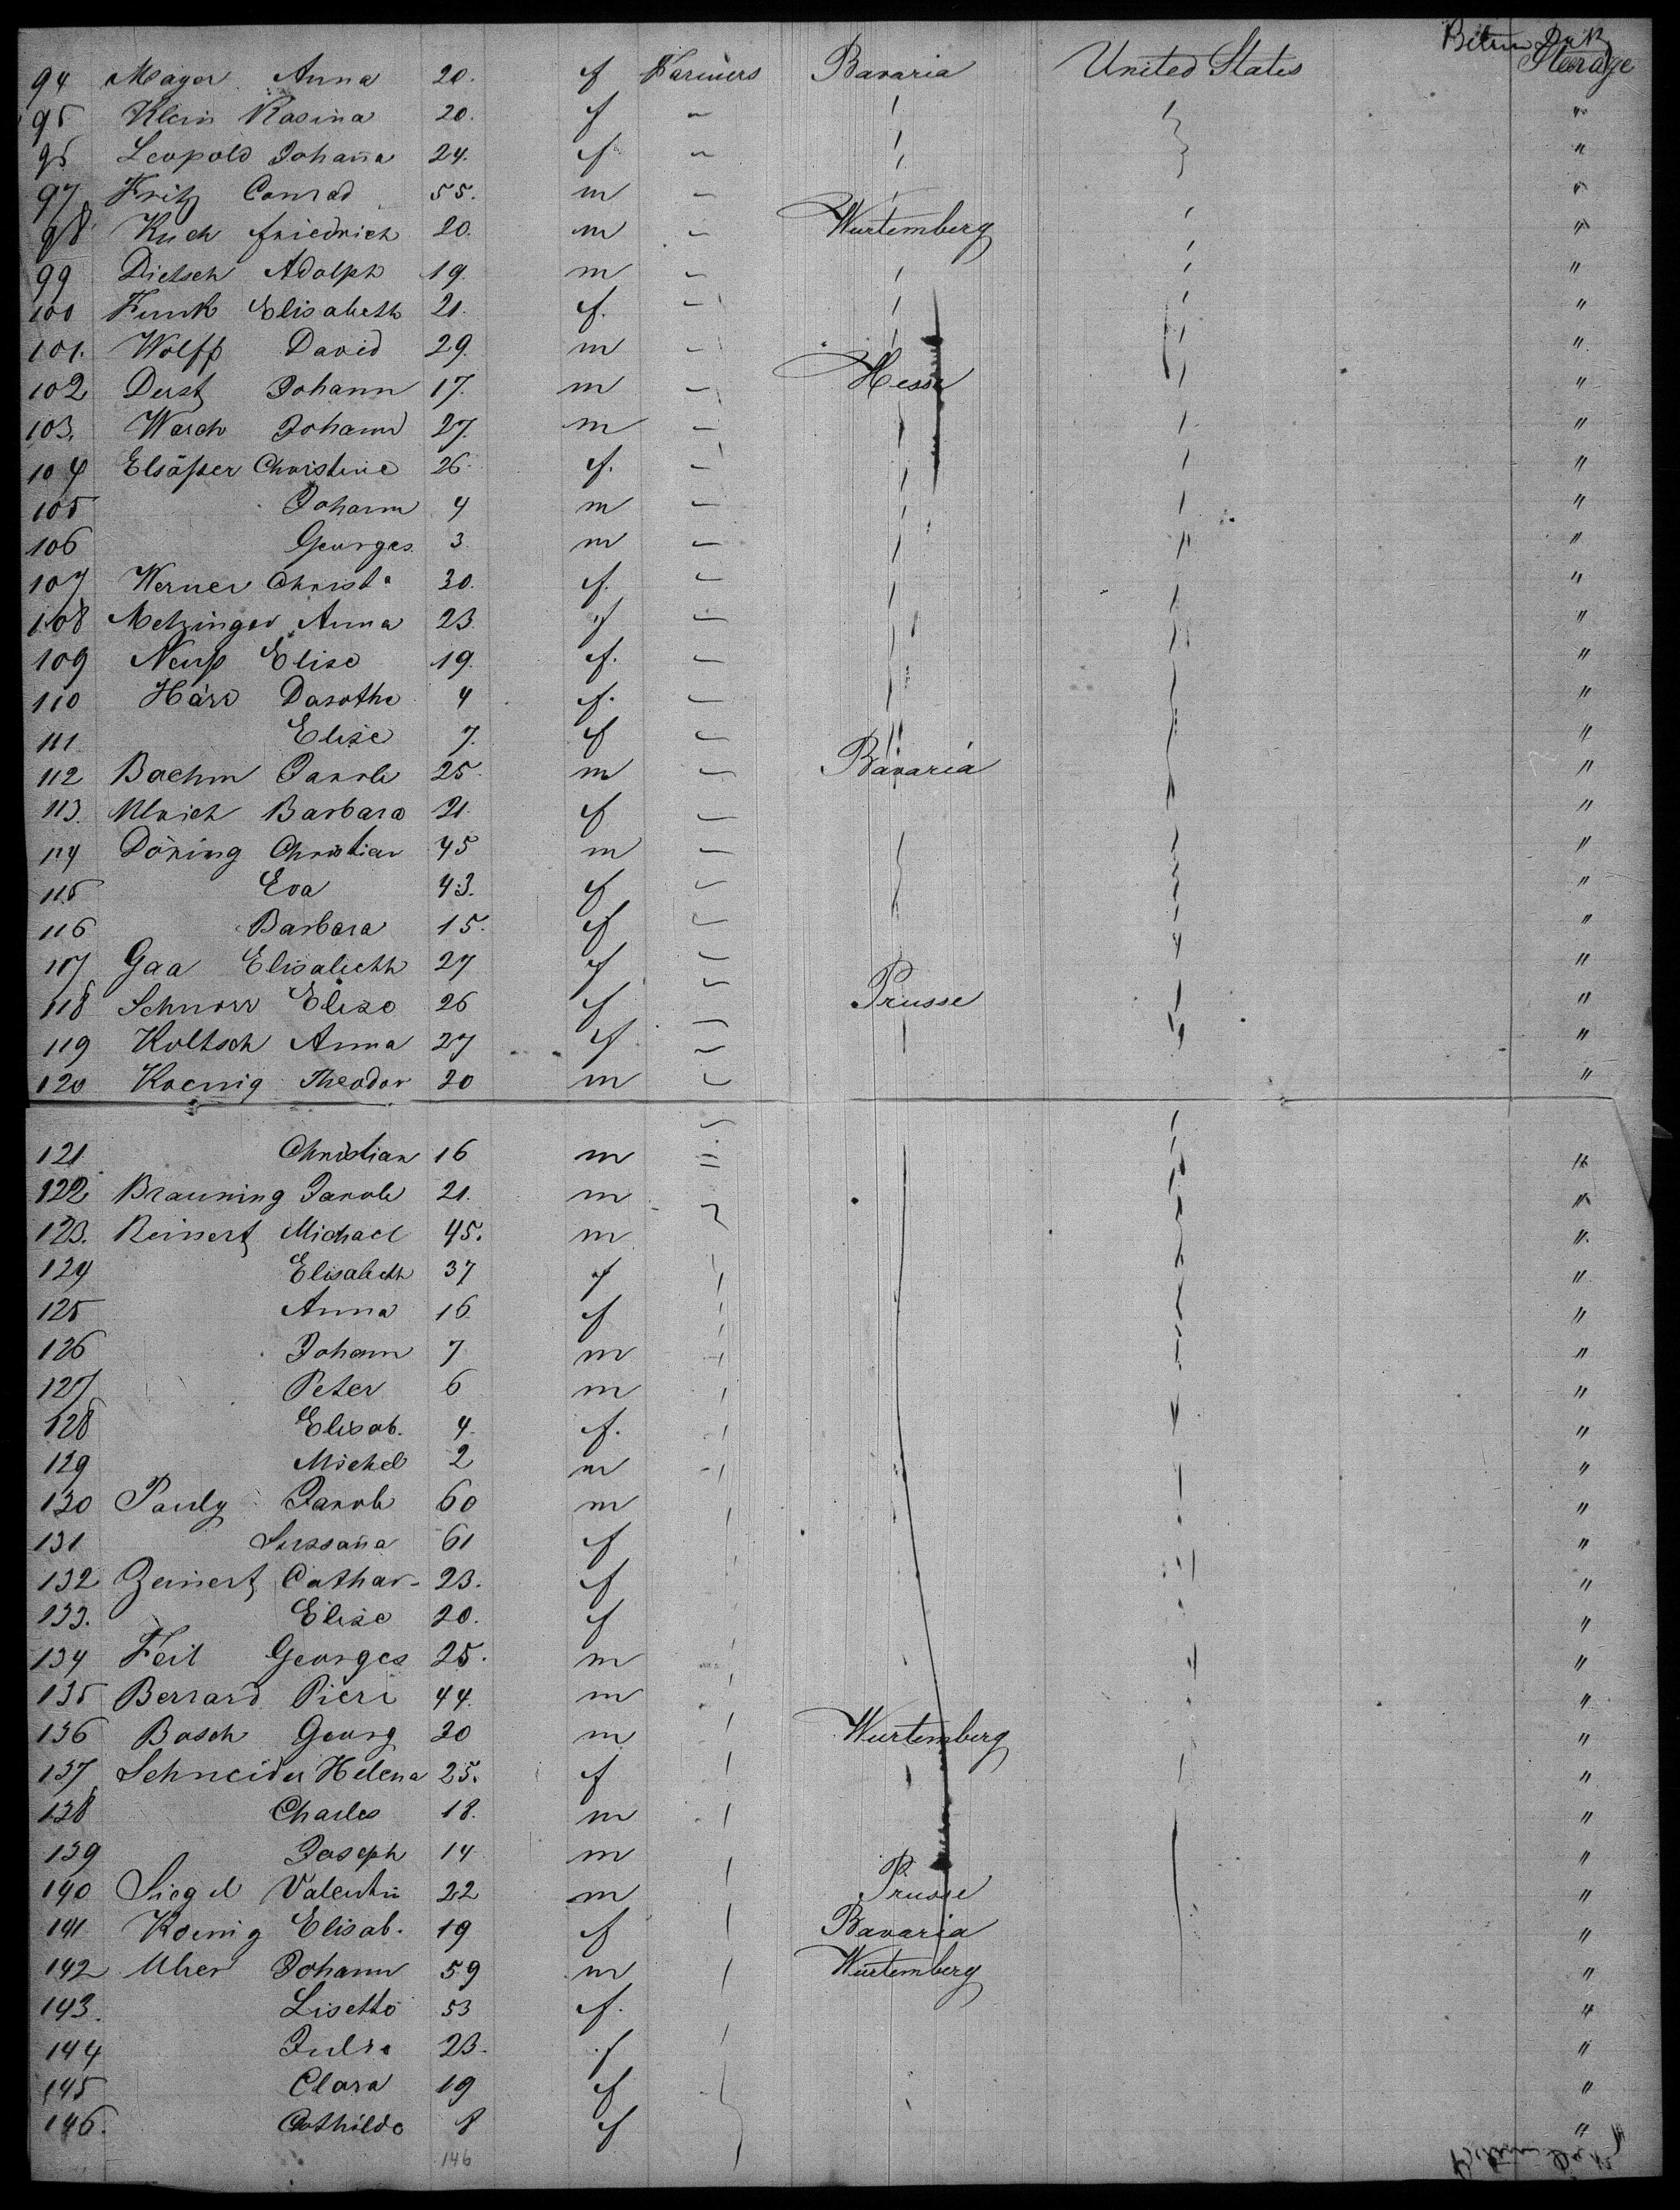 Betwn Deck
94 Mayer Anna 20. f Farmers Bavaria United States Sterage
95 Klein Rosina 20. f "
96 Leopold Johana 24. f "
97 Fritz Conrad 55. m "
98 Kuch friedrich 20. m Wurtemberg "
99 Dietsch Adolph 19. m "
100 Funk Elisabeth 21. f. "
101. Wolff David 29. m "
102 Derst Johann 17. m Hesse "
103. Warch Johann 27. m "
104 Elsäßer Christine 26. f. "
105 Johann 4 m "
106 Georges 3 m "
107 Werner Christa 30. f. "
108 Metzinger Anna 23. f "
109 Neuß Elise 19. f. "
110 Härr Dorothe 4 f. "
111 Elise 7. f "
112 Boehm Jakob 25. m Bavaria "
113. Ulrich Barbara 21. f "
114 Döring Christian 45 m "
115 Eva 43. f "
116 Barbara 15. f "
117 Gaa Elisabeth 27 f "
118 Schnorr Elise 26 f Prusse "
119 Koltsch Anna 27 f "
120 Koenig Theodor 20 m "
121 Christian 16 m "
122 Brauning Jakob 21. m "
123. Reinert Michael 45. m "
124 Elisabeth 37 f "
125 Anna 16 f "
126 Johann 7 m "
127 Peter 6 m "
128 Elisab. 4 f. "
129 Michel 2 m "
130 Pauly Jakob 60 m "
131 Sussaña 61 f "
132 Zeinert Cathar- 23. f "
133. Elise 20. f "
134 Feil Georges 25. m "
135 Berrard Piere 44. m "
136 Bosch Georg 30 m Wurtemberg "
137 Schneider Helena 25. f "
138 Charles 18. m "
139 Joseph 14 m "
140 Siegel Valentin 22 m Prusse "
141 Koenig Elisab. 19 f Bavaria "
142 Uhrer Johann 59 m Wurtemberg "
143. Lisette 53 f. "
144 Julia 23. f "
145 Clara 19 f "
146. Clothilde 8 f "
146